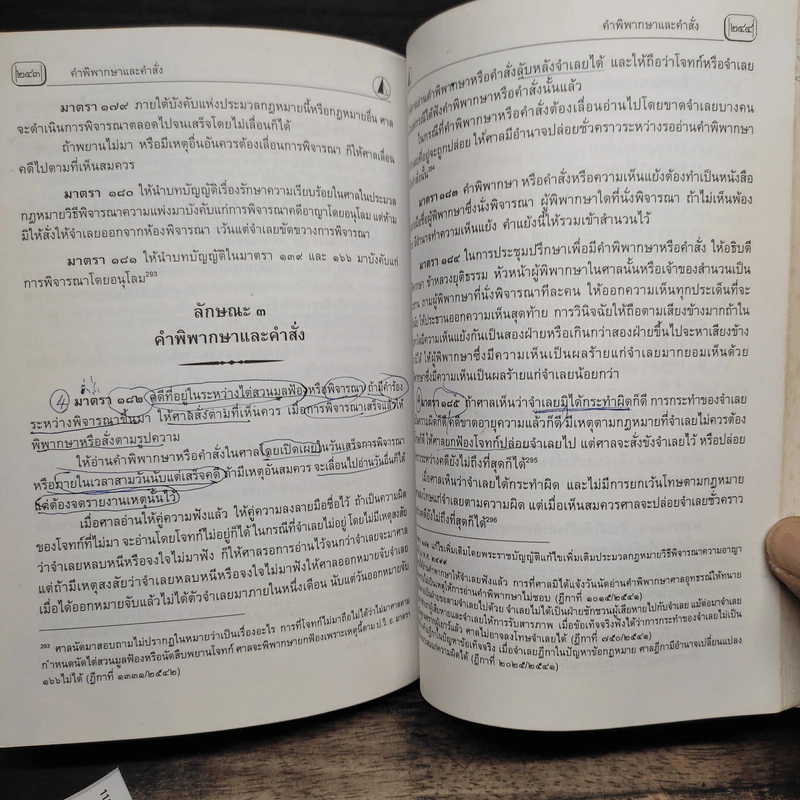 ๒๔๓
คำพิพากษาและคำสั่ง
มาตรา ๑๗๙ ภายใต้บังคับแห่งประมวลกฎหมายนี้หรือกฎหมายอื่น ศาล
จะดำเนินการพิจารณาตลอดไปจนเสร็จโดยไม่เลื่อนก็ได้
ถ้าพยานไม่มา หรือมีเหตุอื่นอันควรต้องเลื่อนการพิจารณา ก็ให้ศาลเลื่อน
คดีไปตามที่เห็นสมควร
มาตรา ๑๘๐ ให้นำบทบัญญัติเรื่องรักษาความเรียบร้อยในศาลในประมวล
กฎหมายวิธีพิจารณาความแพ่งมาบังคับแก่การพิจารณาคดีอาญาโดยอนุโลม แต่ห้าม
มิให้สั่งให้จำเลยออกจากห้องพิจารณา เว้นแต่จำเลยขัดขวางการพิจารณา
มาตรา ๑๘๑ ให้นำบทบัญญัติในมาตรา ๑๓๙ และ ๑๖๖ มาบังคับแก่
การพิจารณาโดยอนุโลม293
ลักษณะ ๓
คำพิพากษาและคำสั่ง
4 มาตรา ๑๘๒ คดีที่อยู่ในระหว่างไต่สวนมูลฟ้องหรือพิจารณา ถ้ามีคำร้อง
ระหว่างพิจารณาขึ้นมา ให้ศาลสั่งตามที่เห็นควร เมื่อการพิจารณาเสร็จแล้วให้
พิพากษาหรือสั่งตามรูปความ
ให้อ่านคำพิพากษาหรือคำสั่งในศาลโดยเปิดเผยในวันเสร็จการพิจารณา
หรือภายในเวลาสามวันนับแต่เสร็จคดี ถ้ามีเหตุอันสมควร จะเลื่อนไปอ่านวันอื่นก็ได้
แต่ต้องจดรายงานเหตุนั้นไว้
เมื่อศาลอ่านให้คู่ความฟังแล้ว ให้คู่ความลงลายมือชื่อไว้ ถ้าเป็นความผิด
ของโจทก์ที่ไม่มา จะอ่านโดยโจทก์ไม่อยู่ก็ได้ ในกรณีที่จำเลยไม่อยู่ โดยไม่มีเหตุสงสัย
ว่าจำเลยหลบหนีหรือจงใจไม่มาฟัง ก็ให้ศาลรอการอ่านไว้จนกว่าจำเลยจะมาศาล
แต่ถ้ามีเหตุสงสัยว่าจำเลยหลบหนีหรือจงใจไม่มาฟังให้ศาลออกหมายจับจำเลย
เมื่อได้ออกหมายจับแล้วไม่ได้ตัวจำเลยมาภายในหนึ่งเดือน นับแต่วันออกหมายจับ
293 ศาลนัดมาสอบถามไม่ปรากฏในหมายว่าเป็นเรื่องอะไร การที่โจทก์ไม่มาถือไม่ได้ว่าไม่มาศาลตาม
กำหนดนัดไต่สวนมูลฟ้องหรือนัดสืบพยานโจทก์ ศาลจะพิพากษายกฟ้องเพราะเหตุนี้ตาม ป.วิ.อ. มาตรา
๑๖๖ไม่ได้ (ฎีกาที่ ๑๓๓๑/๒๕๔๒)
คำพิพากษาและคำสั่ง
๒๔๔
อ่านคำพิพากษาหรือคำสั่งลับหลังจำเลยได้ และให้ถือว่าโจทก์หรือจำเลย
ได้ฟังคำพิพากษาหรือคำสั่งนั้นแล้ว
ในกรณีที่คำพิพากษาหรือคำสั่งต้องเลื่อนอ่านไปโดยขาดจำเลยบางคน
ที่อยู่จะถูกปล่อย ให้ศาลมีอำนาจปล่อยชั่วคราวระหว่างรออ่านคำพิพากษา
สั่งนั้น294
มาตรา ๑๘๓ คำพิพากษา หรือคำสั่งหรือความเห็นแย้งต้องทำเป็นหนังสือ
มือชื่อผู้พิพากษาซึ่งนั่งพิจารณา ผู้พิพากษาใดที่นั่งพิจารณา ถ้าไม่เห็นพ้อง
มีอำนาจทำความเห็นแย้ง คำแย้งนี้ให้รวมเข้าสำนวนไว้
มาตรา ๑๘๔ ในการประชุมปรึกษาเพื่อมีคำพิพากษาหรือคำสั่ง ให้อธิบดี
พิพากษา ข้าหลวงยุติธรรม หัวหน้าผู้พิพากษาในศาลนั้นหรือเจ้าของสำนวนเป็น
ประธาน ถามผู้พิพากษาที่นั่งพิจารณาทีละคน ให้ออกความเห็นทุกประเด็นที่จะ
ฉัย ให้ประธานออกความเห็นสุดท้าย การวินิจฉัยให้ถือตามเสียงข้างมากถ้าใน
มีความเห็นแย้งกันเป็นสองฝ่ายหรือเกินกว่าสองฝ่ายขึ้นไปจะหาเสียงข้าง
ได้ ให้ผู้พิพากษาซึ่งมีความเห็นเป็นผลร้ายแก่จำเลยมากยอมเห็นด้วย
ความเห็นเป็นผลร้ายแก่จำเลยน้อยกว่า
มาตรา ๑๘๕ ถ้าศาลเห็นว่าจำเลยมิได้กระทำผิดก็ดี การกระทำของจำเลย
ความผิดก็ดี คดีขาดอายุความแล้วก็ดี มีเหตุตามกฎหมายที่จำเลยไม่ควรต้อง
ให้ศาลยกฟ้องโจทก์ปล่อยจำเลยไป แต่ศาลจะสั่งขังจำเลยไว้ หรือปล่อย
ระหว่างคดียังไม่ถึงที่สุดก็ได้295
เมื่อศาลเห็นว่าจำเลยได้กระทำผิด และไม่มีการยกเว้นโทษตามกฎหมาย
ลงโทษแก่จำเลยตามความผิด แต่เมื่อเห็นสมควรศาลจะปล่อยจำเลยชั่วคราว
คดียังไม่ถึงที่สุดก็ได้296
แก้ไขเพิ่มเติมโดยพระราชบัญญัติแก้ไขเพิ่มเติมประมวลกฎหมายวิธีพิจารณาความอาญา
พ.ศ. ๒๔๙๙
อ่านคำพิพากษาให้จำเลยฟังแล้ว การที่ศาลมิได้แจ้งวันนัดอ่านคำพิพากษาศาลอุทธรณ์ให้ทนาย
เป็นเหตุให้การอ่านคำพิพากษาไม่ชอบ (ฎีกาที่ ๑๐๑๕/๒๕๔๑)
จำเลยไม่ได้เป็นฝ่ายชักชวนผู้เสียหายไปกับจำเลย แม้ต่อมาจำเลย
ผู้เสียหายและจำเลยให้การรับสารภาพ เมื่อข้อเท็จจริงฟังได้ว่าการกระทำของจำเลยไม่เป็น
ศาลไม่อาจลงโทษจำเลยได้ (ฎีกาที่ ๗๕๐/๒๕๔๑)
ฎีกาในปัญหาข้อเท็จจริง เมื่อจำเลยฎีกาในปัญหาข้อกฎหมาย ศาลฎีกามีอำนาจเปลี่ยนแปลง
ความผิดได้ (ฎีกาที่ ๒๐๒๕/๒๕๔๑)